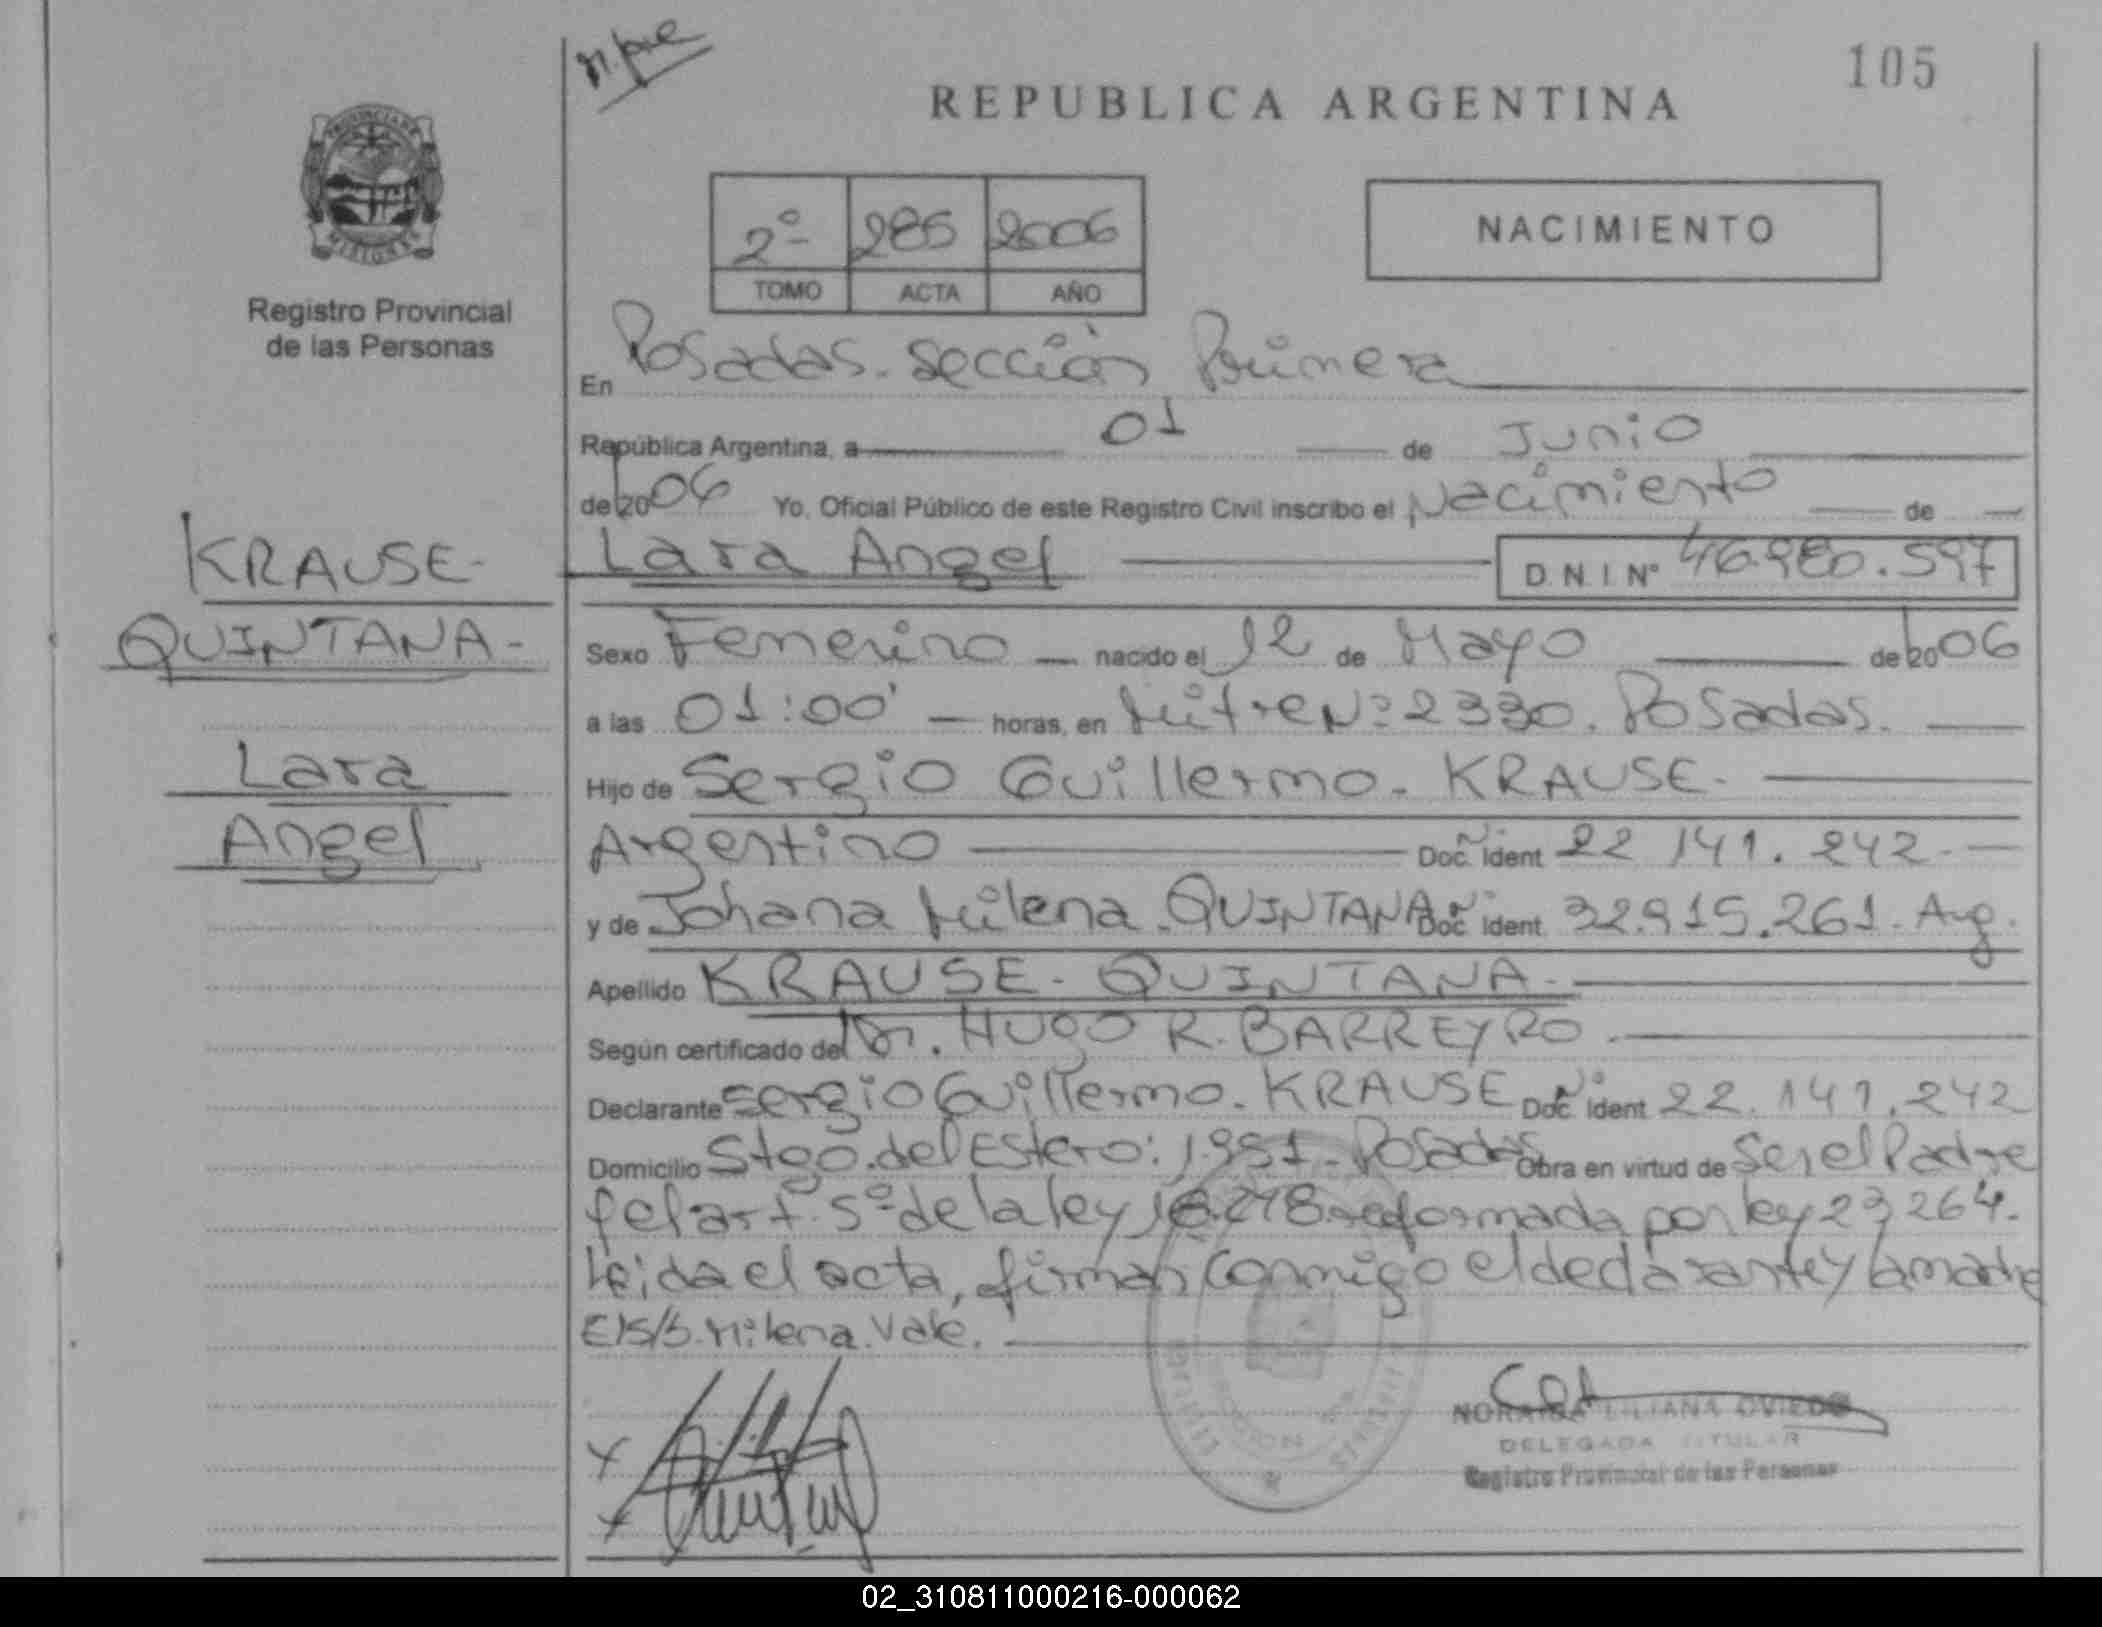 105
REPUBLICA ARGENTINA
2º 285 2006
TOMO ACTA AÑO
NACIMIENTO
Registro Provincial
de las Personas
En Posadas. Sección Primera
República Argentina, a 01 de Junio
de 2006 Yo, Oficial Público de este Registro Civil inscribo el Nacimiento de
Lara Angel D.N.I. Nº 46.980.597
KRAUSE-
QUINTANA-
Lara
Angel
Sexo Femenino nacido el 12 de Mayo de 2006
a las 01:00' horas, en Mitre Nº 2330. Posadas.
Hijo de Sergio Guillermo. KRAUSE-
Argentino Doc. Ident 22 141.242-
y de Johana Milena. QUINTANA Doc. Ident. 32.915.261. Arg.
Apellido KRAUSE- QUINTANA-
Según certificado del Dr. HUGO R. BARREYRO.
Declarante Sergio Guillermo. KRAUSE Doc. Ident 22.141.242
Domicilio Stgo. del Estero: 1.951. Posadas Obra en virtud de Ser el Padre
art. 5º de la ley 18.248 reformada por ley 23264.
Leida el acta, firman conmigo el declarante y la madre
E/S/S. Milena. Vale.
LILIANA OVIEDO
DELEGADA TITULAR
Registro Provincial de las Personas
02_310811000216-000062